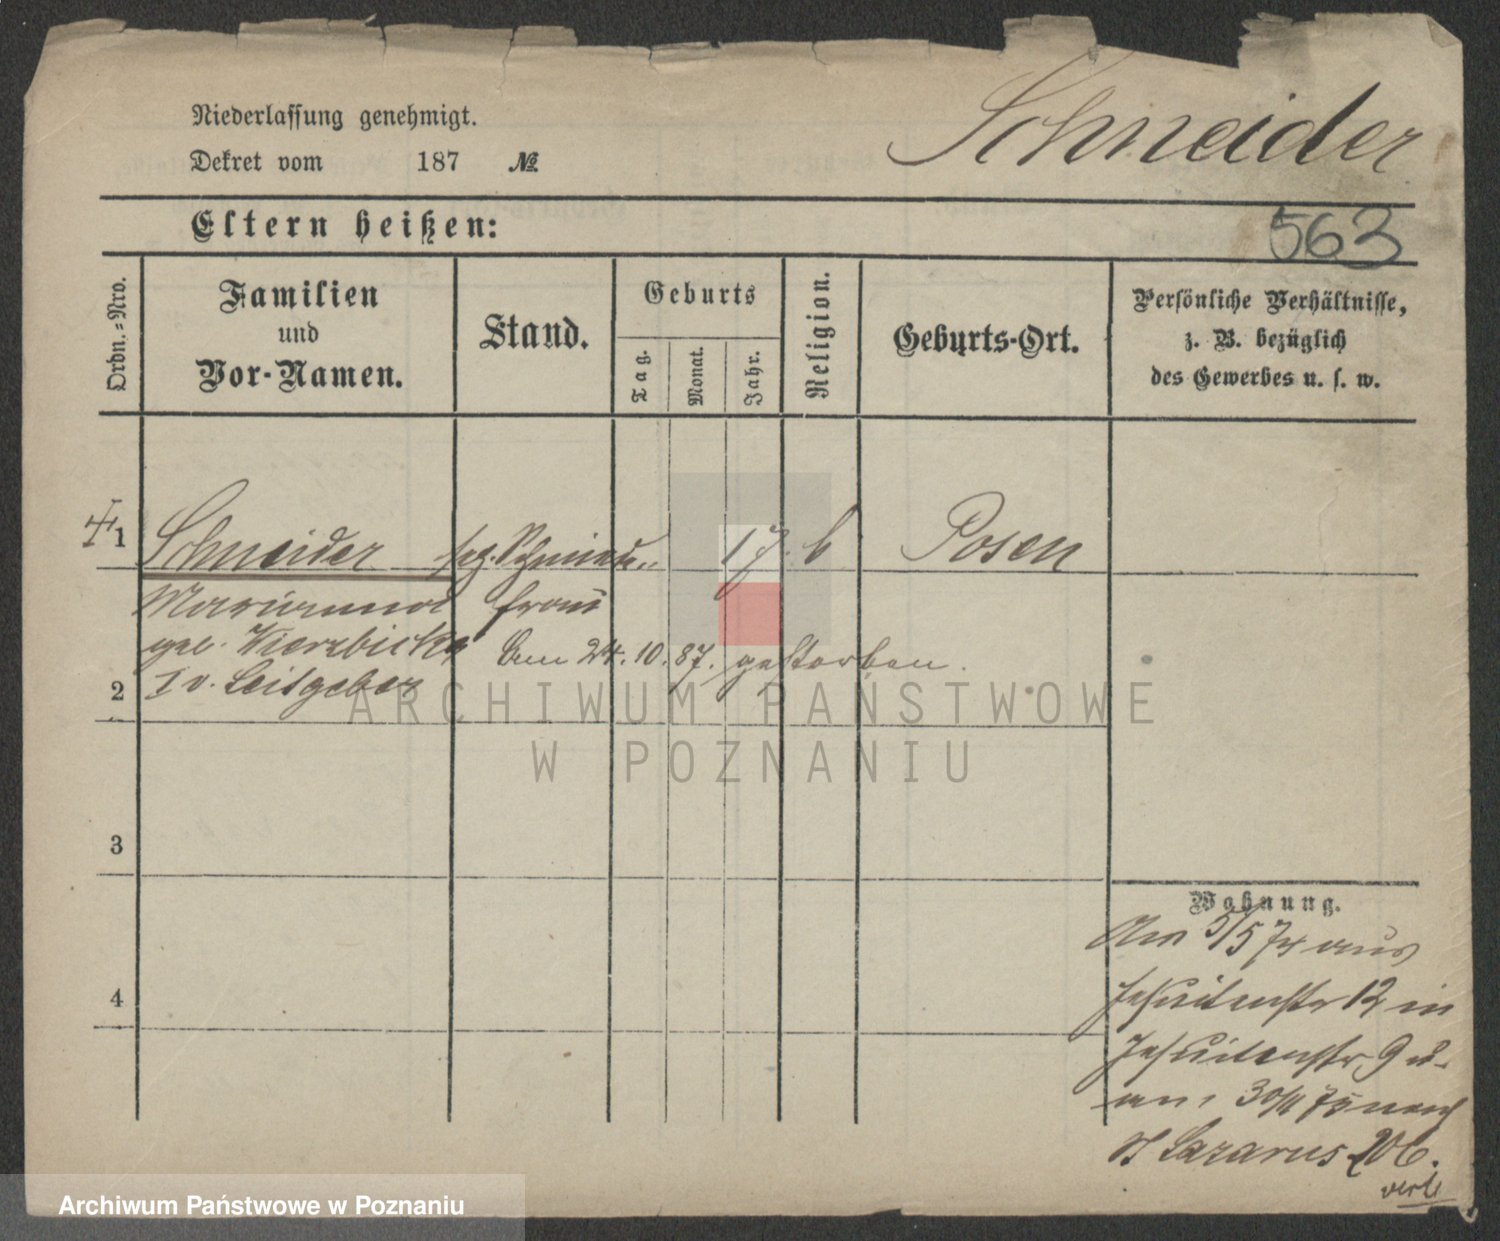 Niederlassung genehmigt.
Dekret vom 187 №
Schneider
Eltern heißen:
563
Ordn.-Nro.
Familien
und
Vor-Namen.
Stand.
Geburts
Tag.
Monat.
Jahr.
Religion.
Geburts-Ort.
Persönliche Verhältnisse,
z. B. bezüglich
des Gewerbes u. s. w.
1 Schneider 17. Posen
Marianna frau
geb. Wierzbicka Am 24.10.87. gestorben.
2 I v. Leitgeber
ARCHIWUM PAŃSTWOWE
W POZNANIU
3
4
Wohnung.
Am 5/5 74 aus
Jesuitenstr 12 in
Jesuitenstr 9 u.
am 30/11 75 nach
St Lazarus
Archiwum Państwowe w Poznaniu